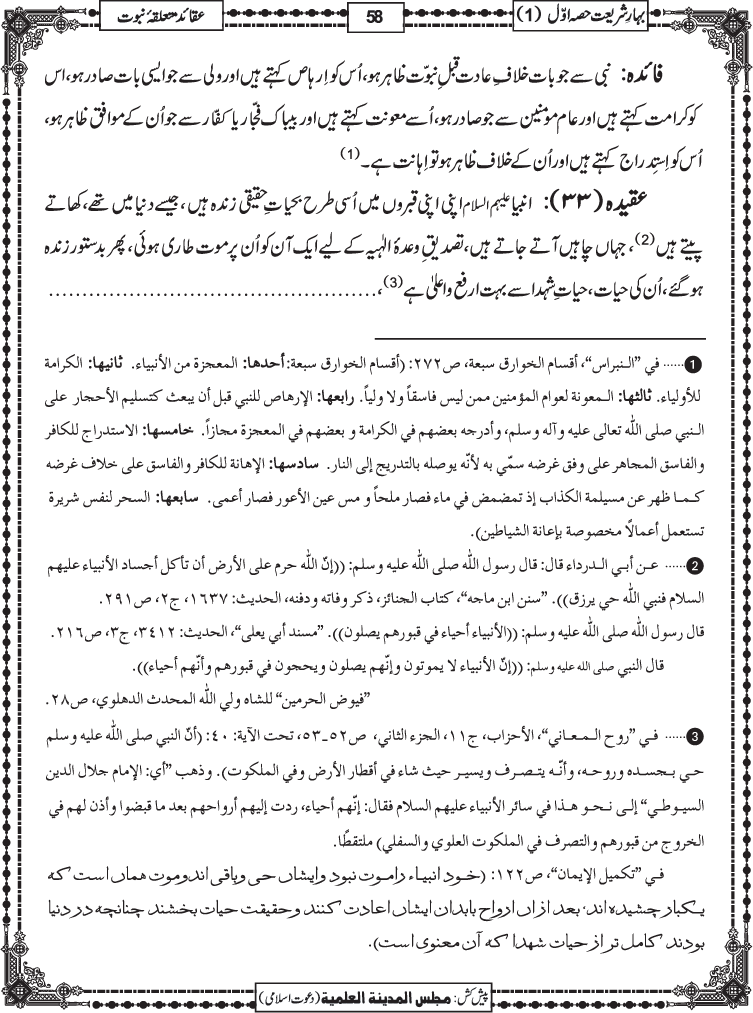 بہارِ شریعت حصہ اوّل (1)
58
عقائد متعلقۂ نبوت
فائدہ: نبی سے جو بات خلافِ عادت قبلِ نبوّت ظاہر ہو، اُس کو اِرہاص کہتے ہیں اور ولی سے جو ایسی بات صادر ہو، اس
کو کرامت کہتے ہیں اور عام مومنین سے جو صادر ہو، اُسے معونت کہتے ہیں اور بیباک فجّار یا کفّار سے جو اُن کے موافق ظاہر ہو،
اُس کو اِستِدراج کہتے ہیں اور اُن کے خلاف ظاہر ہو تو اِہانت ہے۔ (1)
عقیدہ (۳۳): انبیا علیہم السلام اپنی اپنی قبروں میں اُسی طرح بحیاتِ حقیقی زندہ ہیں، جیسے دنیا میں تھے، کھاتے
پیتے ہیں (2)، جہاں چاہیں آتے جاتے ہیں، تصدیقِ وعدۂ الٰہیہ کے لیے ایک آن کو اُن پر موت طاری ہوئی، پھر بدستور زندہ
ہوگئے، اُن کی حیات، حیاتِ شہدا سے بہت ارفع و اعلیٰ ہے (3)، ..................................................
❶...... في ”النبراس“، أقسام الخوارق سبعة، ص۲۷۲: (أقسام الخوارق سبعة: أحدها: المعجزة من الأنبياء. ثانيها: الكرامة
للأولياء. ثالثها: المعونة لعوام المؤمنين ممن ليس فاسقاً ولا ولياً. رابعها: الإرهاص للنبي قبل أن يبعث كتسليم الأحجار على
النبي صلى الله تعالى عليه وآله وسلم، وأدرجه بعضهم في الكرامة و بعضهم في المعجزة مجازاً. خامسها: الاستدراج للكافر
والفاسق المجاهر على وفق غرضه سمّي به لأنّه يوصله بالتدريج إلى النار. سادسها: الإهانة للكافر والفاسق على خلاف غرضه
كما ظهر عن مسيلمة الكذاب إذ تمضمض في ماء فصار ملحاً و مس عين الأعور فصار أعمى. سابعها: السحر لنفس شريرة
تستعمل أعمالًا مخصوصة بإعانة الشياطين).
❷...... عن أبي الدرداء قال: قال رسول الله صلى الله عليه وسلم: ((إنّ الله حرم على الأرض أن تأكل أجساد الأنبياء عليهم
السلام فنبي الله حي يرزق)). ”سنن ابن ماجه“، كتاب الجنائز، ذكر وفاته ودفنه، الحديث: ۱۶۳۷، ج۲، ص۲۹۱.
قال رسول الله صلى الله عليه وسلم: ((الأنبياء أحياء في قبورهم يصلون)). ”مسند أبي يعلى“، الحديث: ۳۴۱۲، ج۳، ص۲۱۶.
قال النبي صلى الله عليه وسلم: ((إنّ الأنبياء لا يموتون وإنّهم يصلون ويحجون في قبورهم وأنّهم أحياء)).
”فيوض الحرمين“ للشاه ولي الله المحدث الدهلوي، ص۲۸.
❸...... في ”روح المعاني“، الأحزاب، ج۱۱، الجزء الثاني، ص۵۲ـ۵۳، تحت الآية: ۴۰: (أنّ النبي صلى الله عليه وسلم
حي بجسده وروحه، وأنّه يتصرف ويسير حيث شاء في أقطار الأرض وفي الملكوت). وذهب ”أي: الإمام جلال الدين
السيوطي“ إلى نحو هذا في سائر الأنبياء عليهم السلام فقال: إنّهم أحياء، ردت إليهم أرواحهم بعد ما قبضوا وأذن لهم في
الخروج من قبورهم والتصرف في الملكوت العلوي والسفلي) ملتقطًا.
في ”تكميل الإيمان“، ص۱۲۲: (خود انبیاء راموت نبود وایشاں حی وباقی اندوموت هماں است که
یکبار چشیده اند، بعد ازاں ارواح بابدان ایشاں اعادت کنند وحقیقت حیات بخشند چنانچه در دنیا
بودند کامل تر از حیات شهدا که آں معنوی است).
پیش کش: مجلس المدینة العلمیة (دعوتِ اسلامی)